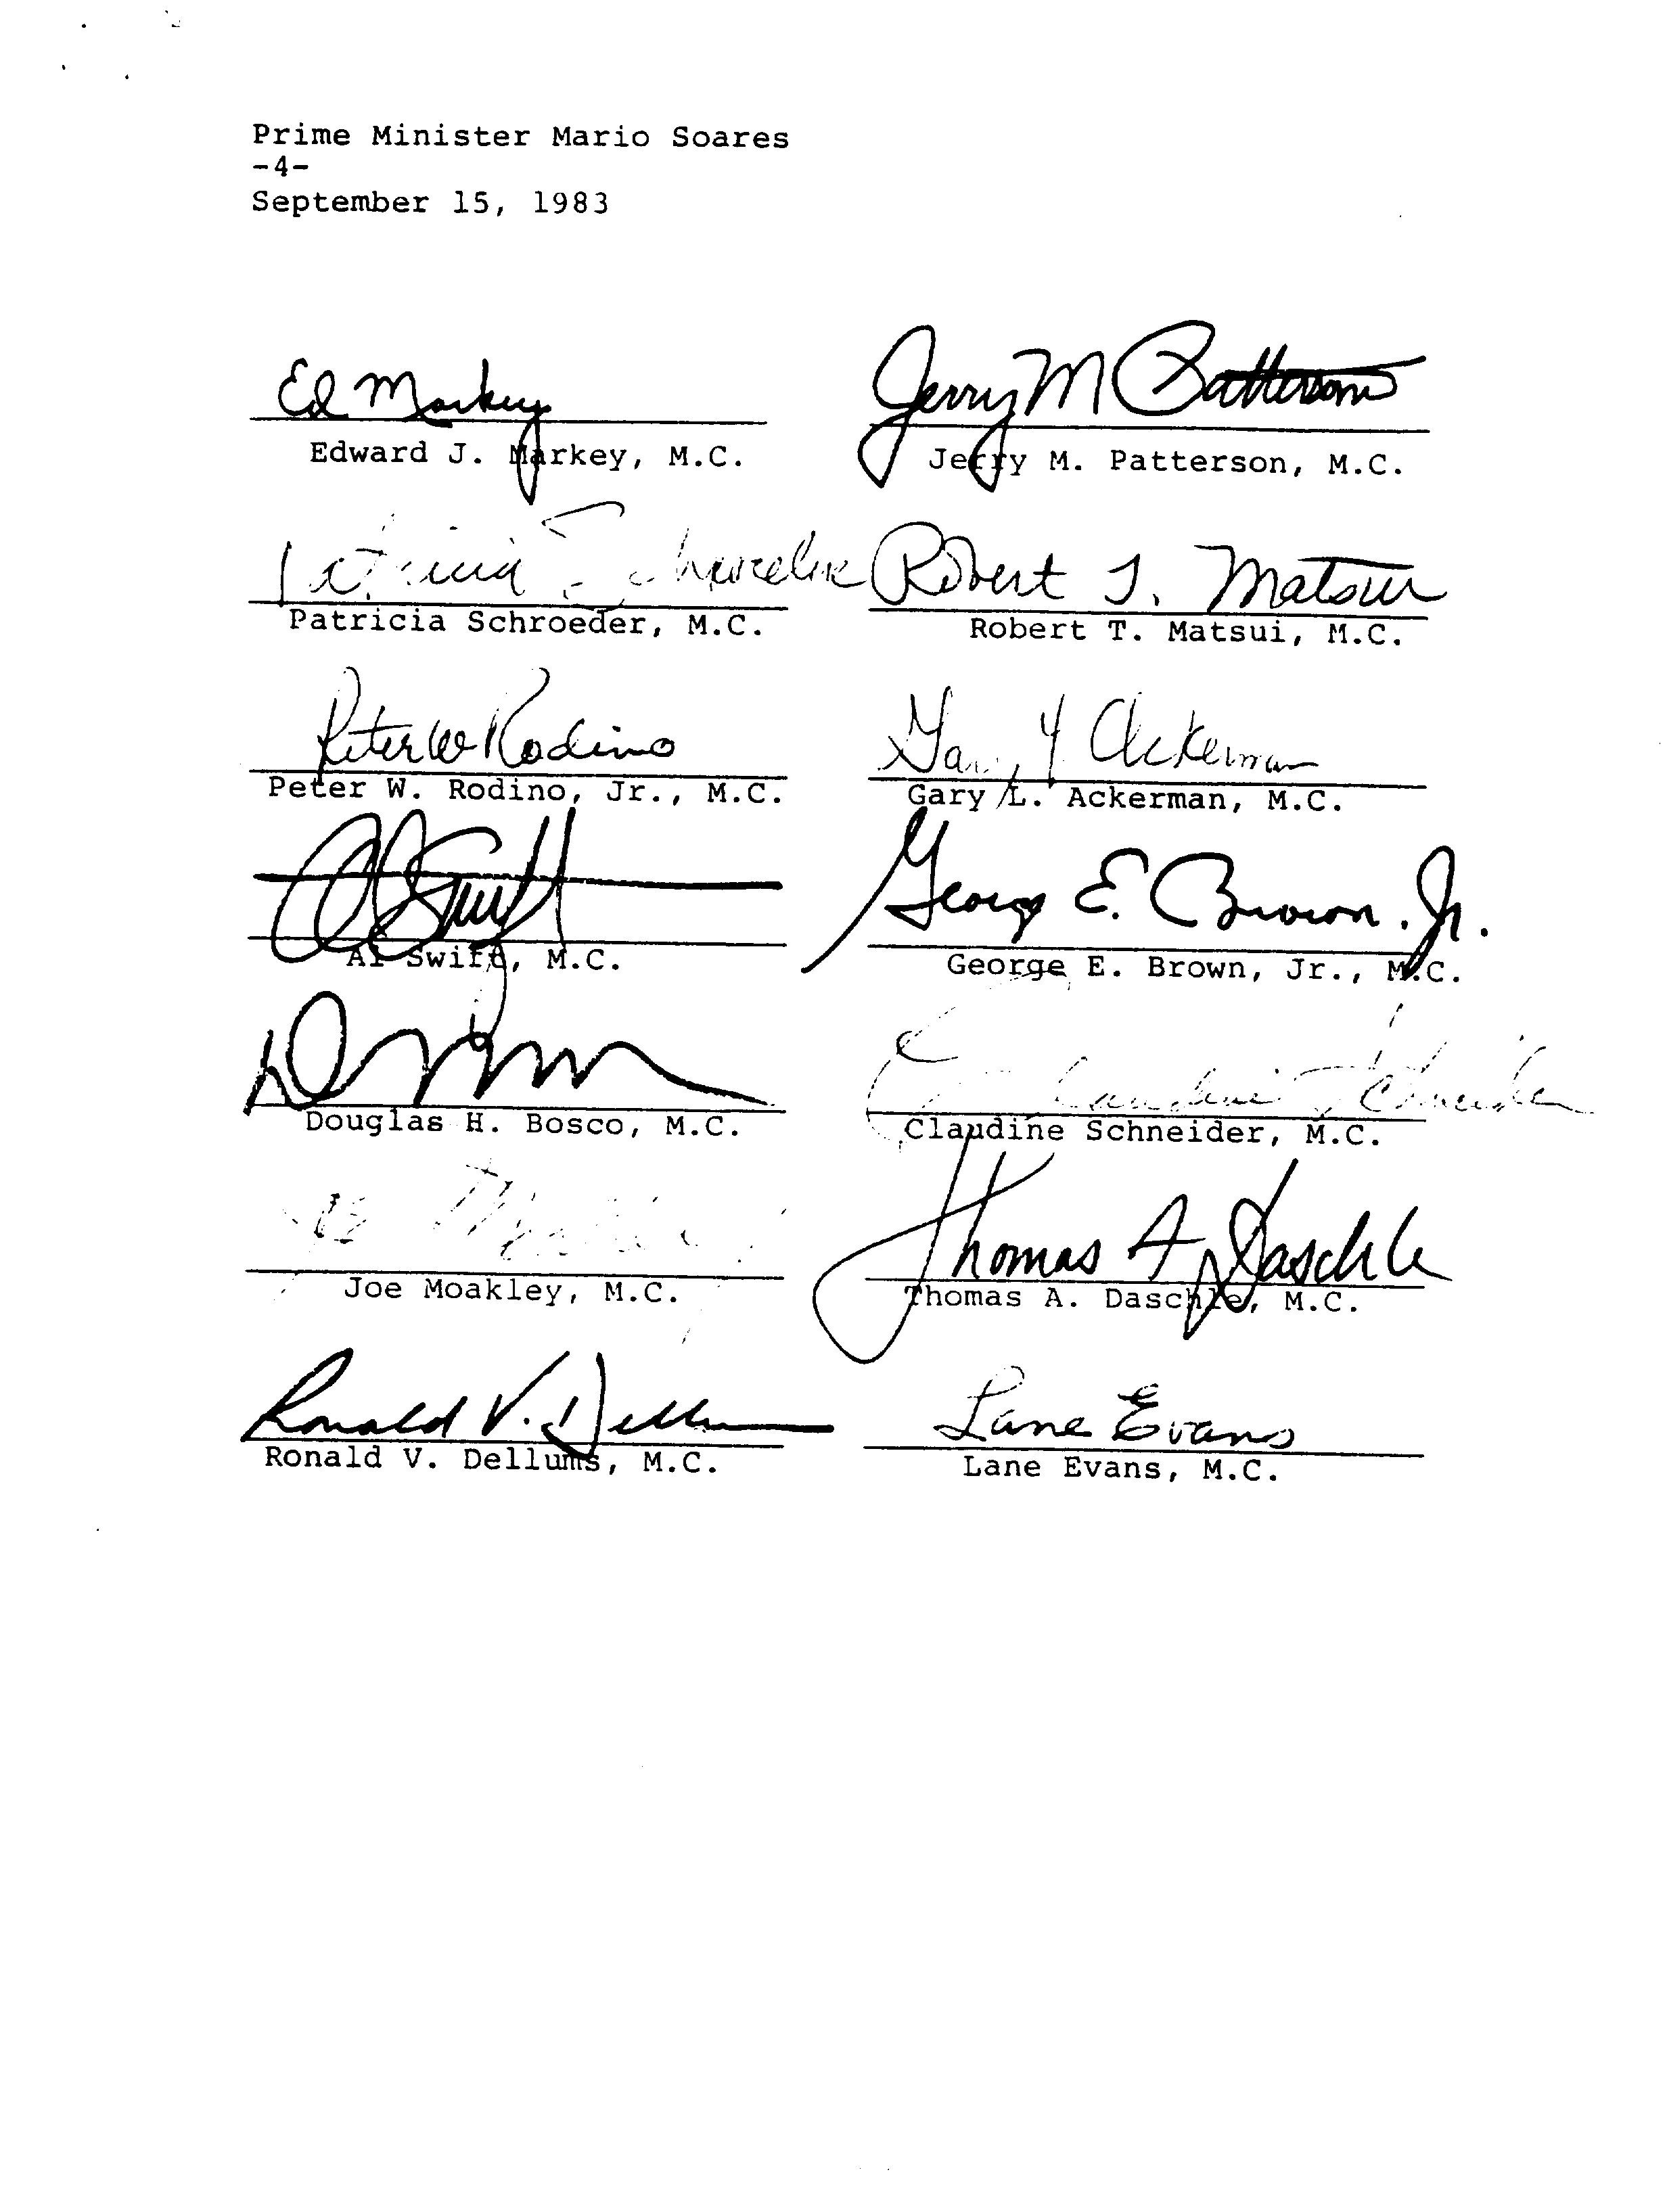 Prime Minister Mario Soares
-4-
September 15, 1983
Ed Markey Jerry M Patterson
Edward J. Markey, M.C. Jerry M. Patterson, M.C.
Patricia Schroeder Robert T. Matsui
Patricia Schroeder, M.C. Robert T. Matsui, M.C.
Peter W Rodino Gary Ackerman
Peter W. Rodino, Jr., M.C. Gary L. Ackerman, M.C.
Al Swift George E. Brown, Jr.
Al Swift, M.C. George E. Brown, Jr., M.C.
Claudine Schneider
Douglas H. Bosco, M.C. Claudine Schneider, M.C.
Joe Moakley Thomas A Daschle
Joe Moakley, M.C. Thomas A. Daschle, M.C.
Ronald V. Dellums Lane Evans
Ronald V. Dellums, M.C. Lane Evans, M.C.